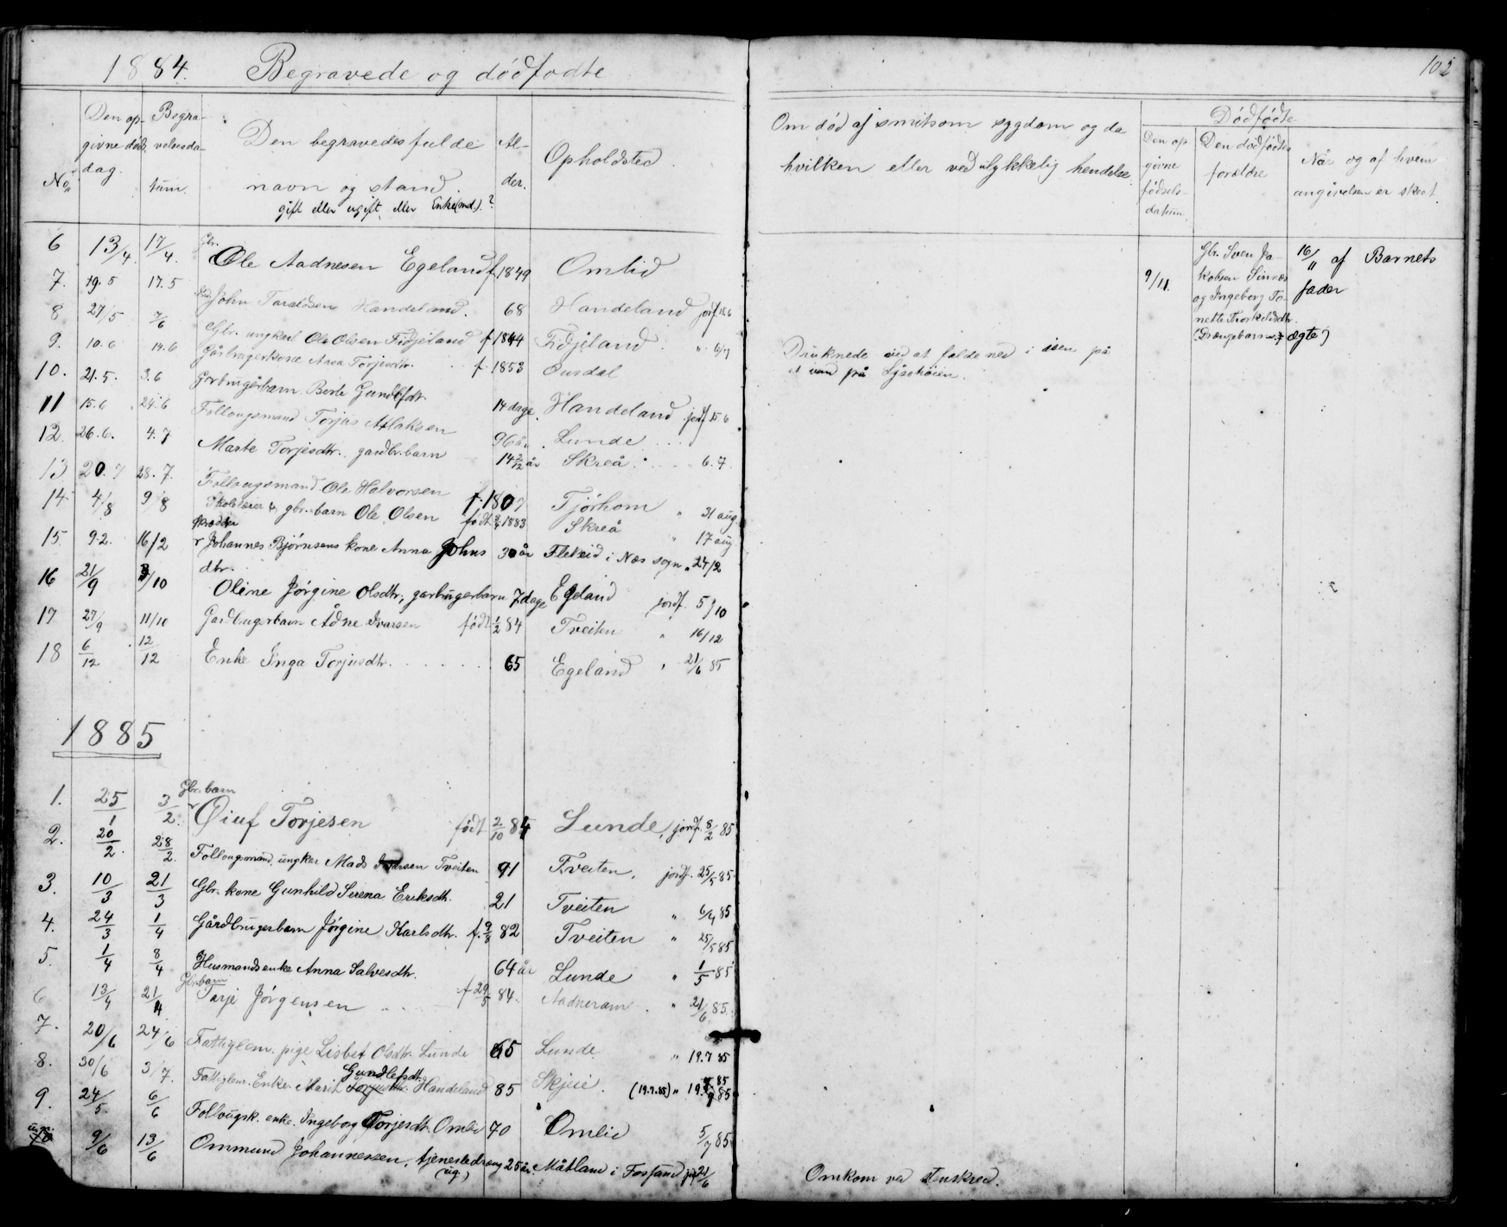 1884. Begravede og dødfødte
102
No
Den opgivne døds dag.
Begravelsesdatum.
Den begravedes fulde navn og stand.
gift eller ugift, eller Enke(md).?
Alder.
Opholdsted.
Om død af smitsom sygdom og da
hvilken eller ved ulykkelig hendelse.
Dødfødte
Den opgivne fødselsdatum
Den dødfødtes forældre
Når og af hvem angivelsen er skret.
6 13/4 17/4. Gbr. Ole Aadnesen Egeland f. 1849 Omlid
7. 19.5 17.5 John Taraldsen Handeland. 68 Handeland jordf 15 6
8 27/5 7/6 Gbr. ungkarl Ole Olsen Fidjeland f 1844 Fidjeland. " 6/7
Druknede ved at falde ned i isen på
et vand på Lysekeien.
9. 10.6 14.6 Gårbrugerkone Anna Torjesdtr. f. 1853 Ousdal
10. 21.5. 3.6 Garbrugårbarn Berte Gundlfdtr. 14 dage Handeland jordf 15 6
11 15.6 24.6 Follougsmand Torjus Aslaksen 96 Lunde
12. 26.6. 4.7 Marte Torjesdtr. gardbr.barn 14 2/12 år Skreå. 6.7.
13 20.7 28.7. Follougsmand Ole Halvorsen f. 1807 Tjørhom " 31 aug
14. 4/8 9/8 Skolelærer & gbr.barn Ole Olsen født 1883 Skreå " 17 aug
15. 9.2. 16/2 Johannes Bjørnsens kone Anna Johns dtr. 30 år Flikeid i Næs sogn " 24/2
16 21/9 3/10 Oline Jørgine Olsdtr, garbrugerbarn 7 dage Egeland jordf. 5/10
17. 27/9 11/10 Gardbrugerbarn Ådne Ivarsen født 1/2 84 Tveiten " 16/12
18 6/12 12/12 Enke Inga Torjusdtr. 65 Egeland " 21/6 85
9/11. Gbr. Sven Jakobsen Sinnes
og Ingeborg Tonette Thorkelsdtr.
(Drengebarn ægte)
16/11 af Barnets
fader
1885
1. 25/1 3/2. Gbr.barn Øiuf Torjesen født 2/10 84 Lunde, jordf. 8/2 85
2. 20/2. 28/2. Follougsmand, ungkar Mads Ivarsen Tveiten 91 Tveiten. jordf. 25/5 85
3. 10/3 21/3 Gbr. kone Gunhild Serena Eriksdtr. 21 Tveiten " 6/4 85
4. 24/3 1/4 Gårdbrugerbarn Jørgine Karlsdtr. f. 9/8 82 Tveiten " 25/5 85
5. 1/4 8/4 Husmandsenke Anna Salvesdtr. 64 år Lunde " 1/5 85
6 13/4 21/4 Gbr.barn Tarje Jørgensen f 29/5 84. Aadneram. " 21/6 85.
7. 20/6 24/6 Fattiglem. pige Lisbet Olsdtr. Lunde 65 Lunde " 19.7 85
8. 30/6 3/7. Fattiglem. Enke Marit Gundlefsdtr. Handeland 85 Skjeie. (19.7.85) " 19.7 85
9. 24/5. 6/6 Follougsk. enke. Ingeborg Torjesdtr. Omlid 70 Omlid 5/7 85
9/6 13/6 Ommund Johannessen, tjenestedreng (ug.) 25 år. Måtland i Fossand jf 21/6
Omkom ved Sneskred.